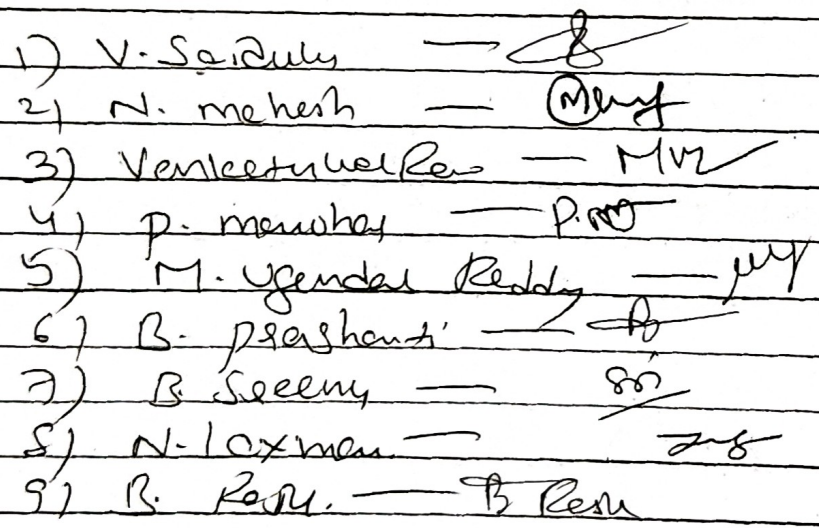 1) V. Saidulu —
2) N. mahesh —
3) Venkatnarayana Rao — MVR
4) P. manohar — P.m
5) M. Ugendar Reddy —
6) B. prashanti —
7) B. Seeenu — Sri
8) N. laxman —
9) B. Raju. — B Raju